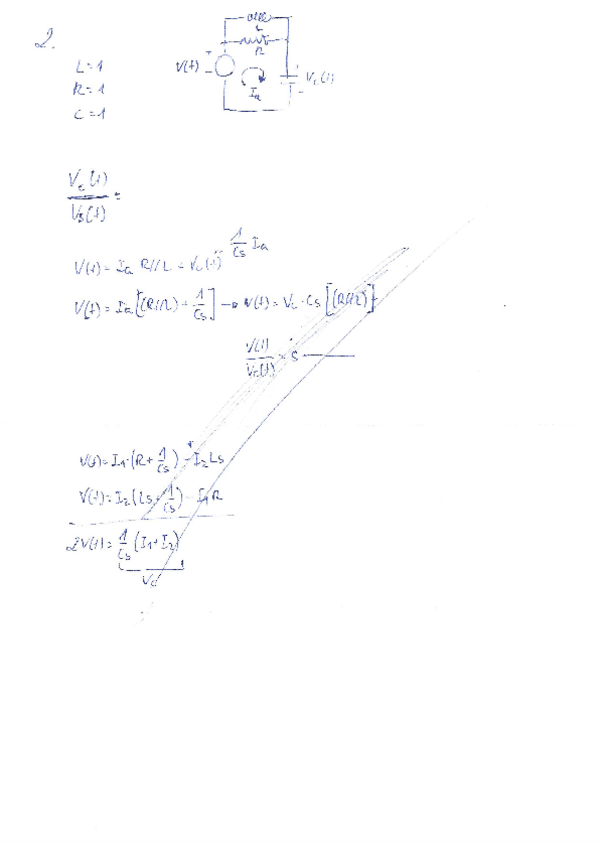 2.
L=1
R=1
C=1
L
R
V(t)
+
-
Ia
+
-
Vc(t)
Vc(t)/Vs(t) =
V(t) = Ia R//L = Vc(t) 1/Cs Ia
V(t) = Ia [(R//L) + 1/Cs] → V(t) = Vc · Cs [(R//L)]
V(t)/Vc(t)
V(t) = I1·(R + 1/Cs) - I2 Ls
V(t) = I2 (Ls + 1/Cs) - I1 R
2V(t) = 1/Cs (I1+I2)
Vc